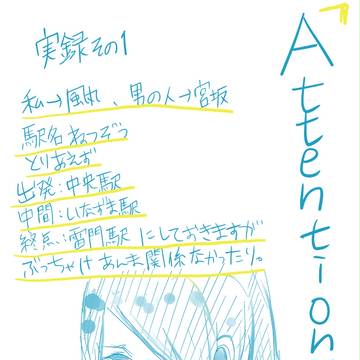 Attention
実録その1
私→風丸、男の人→宮坂
駅名ねつぞう
とりあえず
出発:中央駅
中間:いなずま駅
終点:雷門駅 にしておきますが
ぶっちゃけ あんま関係なかったり。